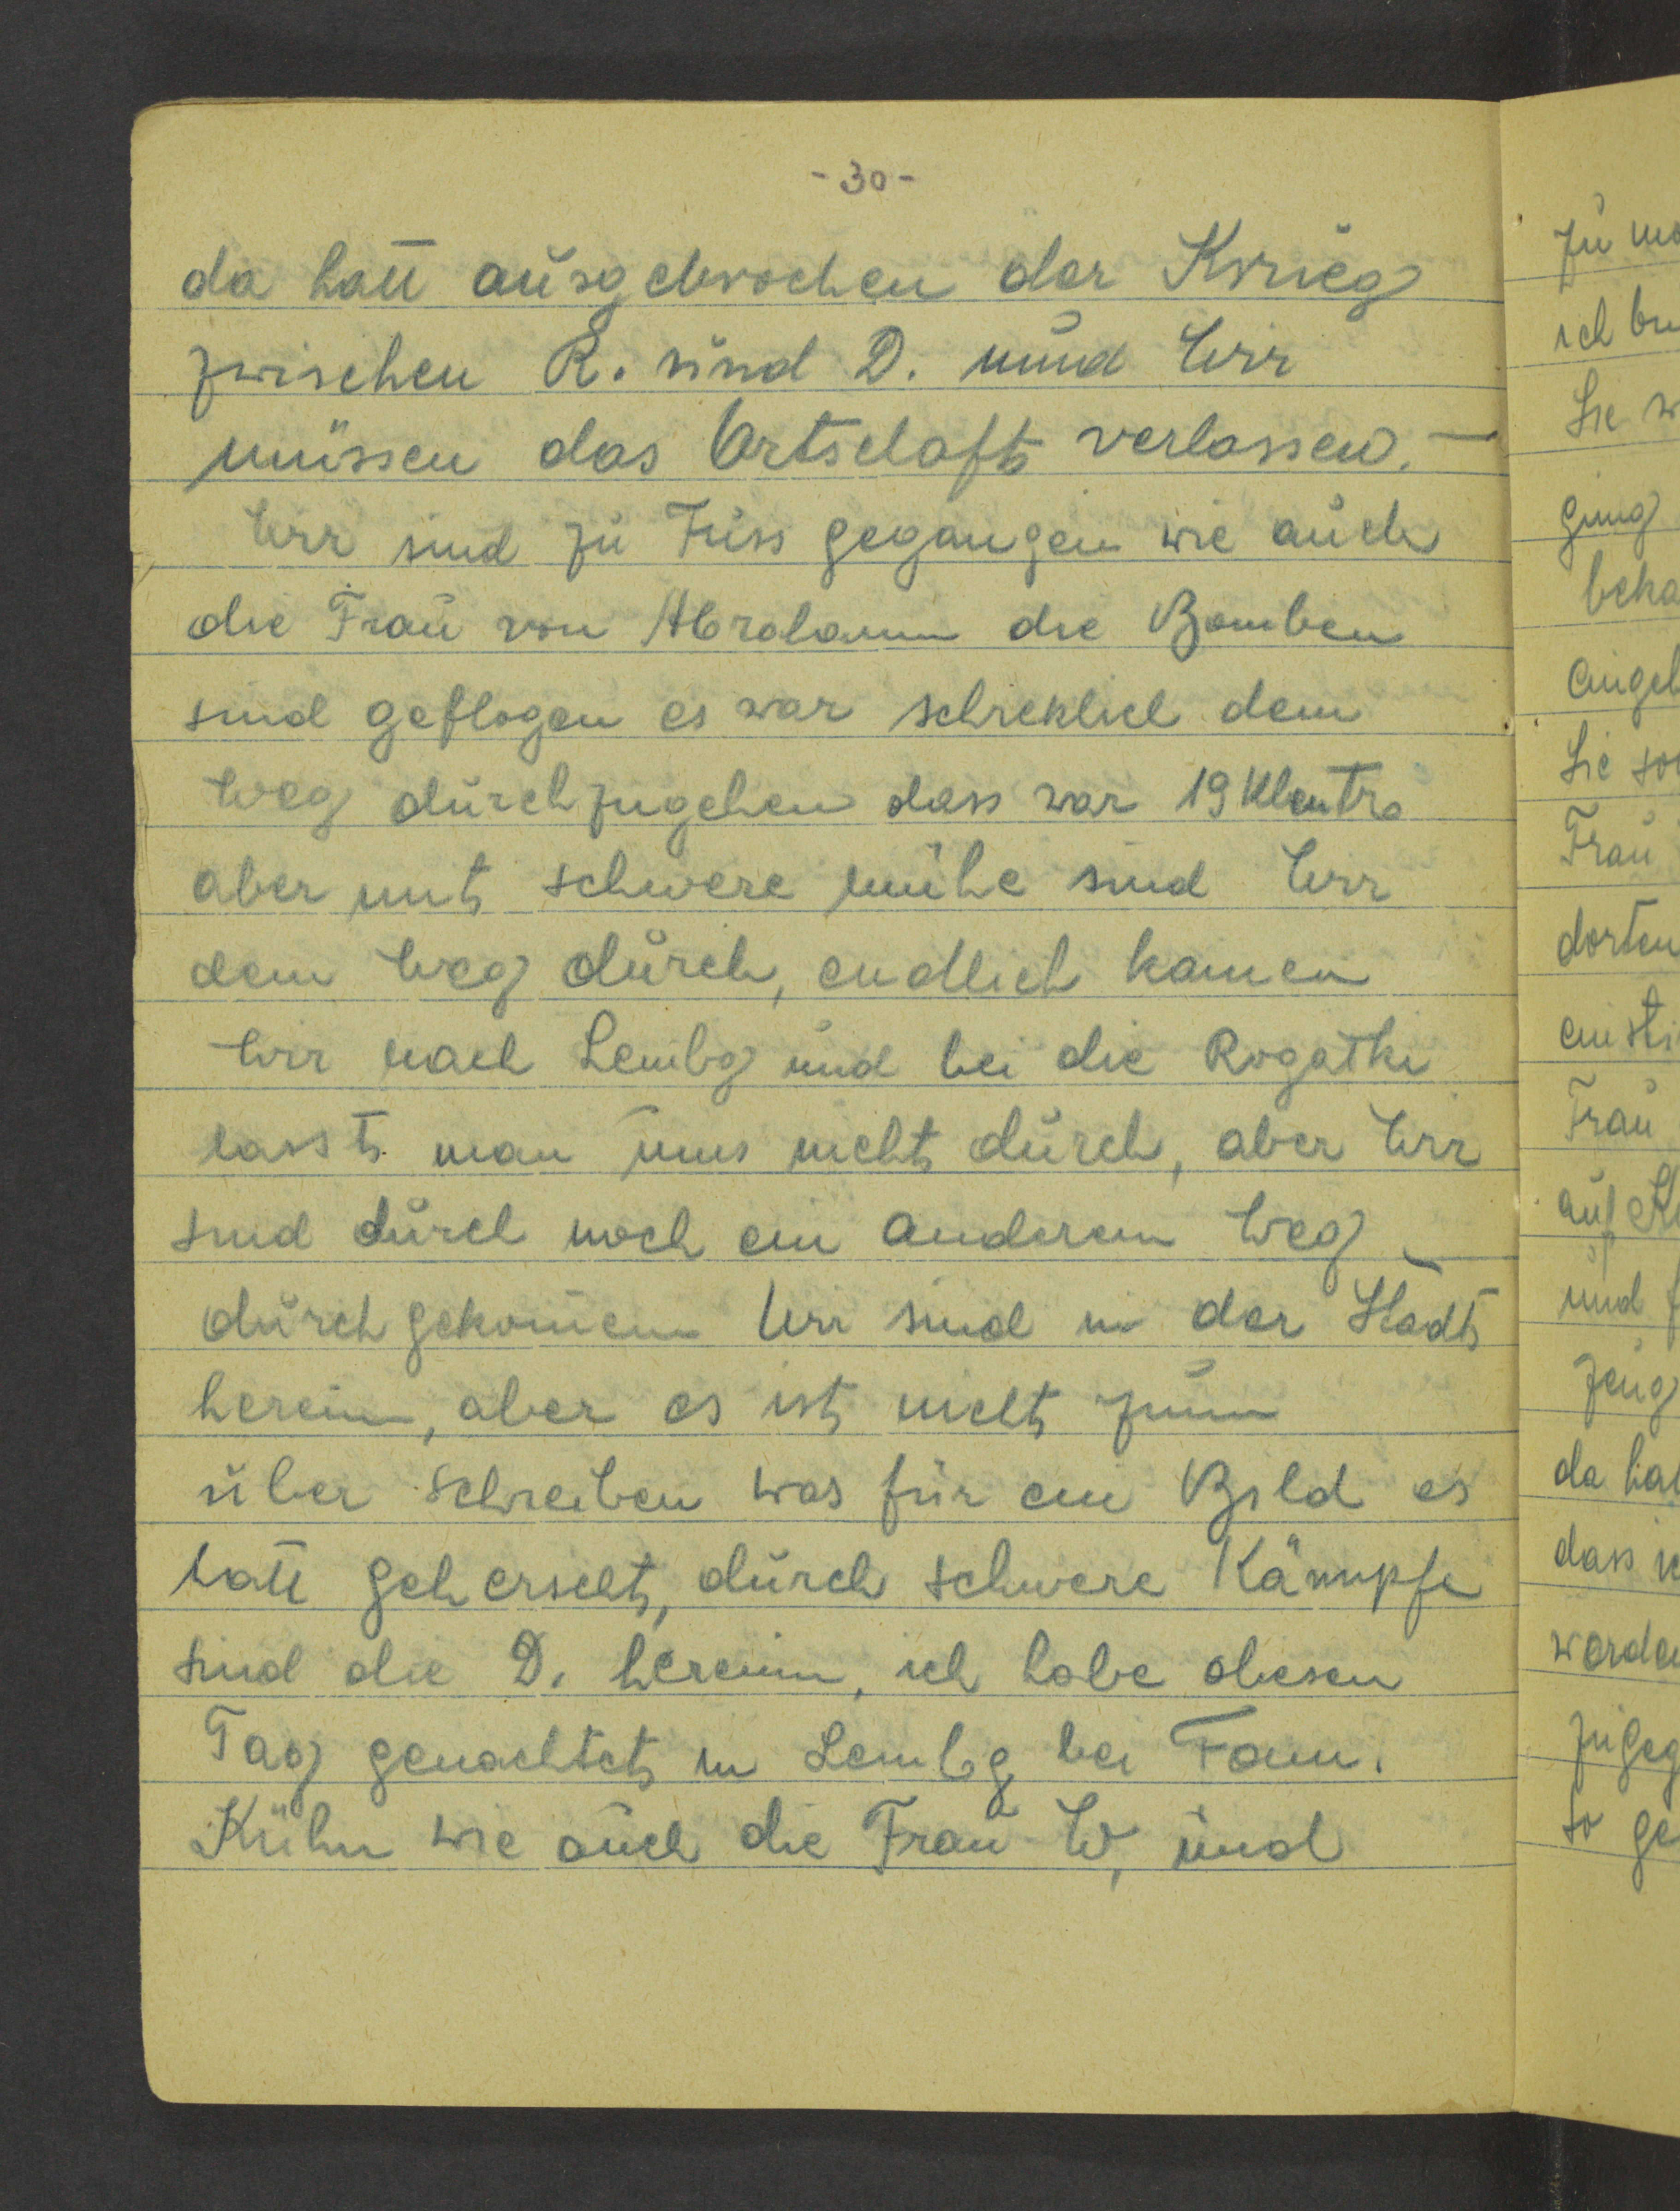 -30-
da hatt ausgebrochen der Krieg
zwischen R. und D. und Wir
müssen das Ortschaft verlassen. -
Wir sind zu Fuss gegangen wie auch
die Frau von Abraham die Bomben
sind geflogen es war schreklich dem
Weg durchzugehen dass war 19
aber mit schwere mühe sind Wir
dem Weg durch, endlich kamen
Wir nach Lembg und bei die Rogatki
lasst man uns nicht durch, aber Wir
sind durch noch ein anderem Weg -
durchgekomen Wir sind in der Stadt
herein, aber es ist nicht zum
über schreiben was für ein Bild es
hatt geherscht, durch schwere Kämpfe
sind die D. herein, ich habe diesen
Tag genachtet in Lembg bei Fam.
Kühn wie auch die Frau W, und
zu
ich
Sie
ging
Sie
Frau
dorten
Frau
auf
und
zeug
da
dass
so